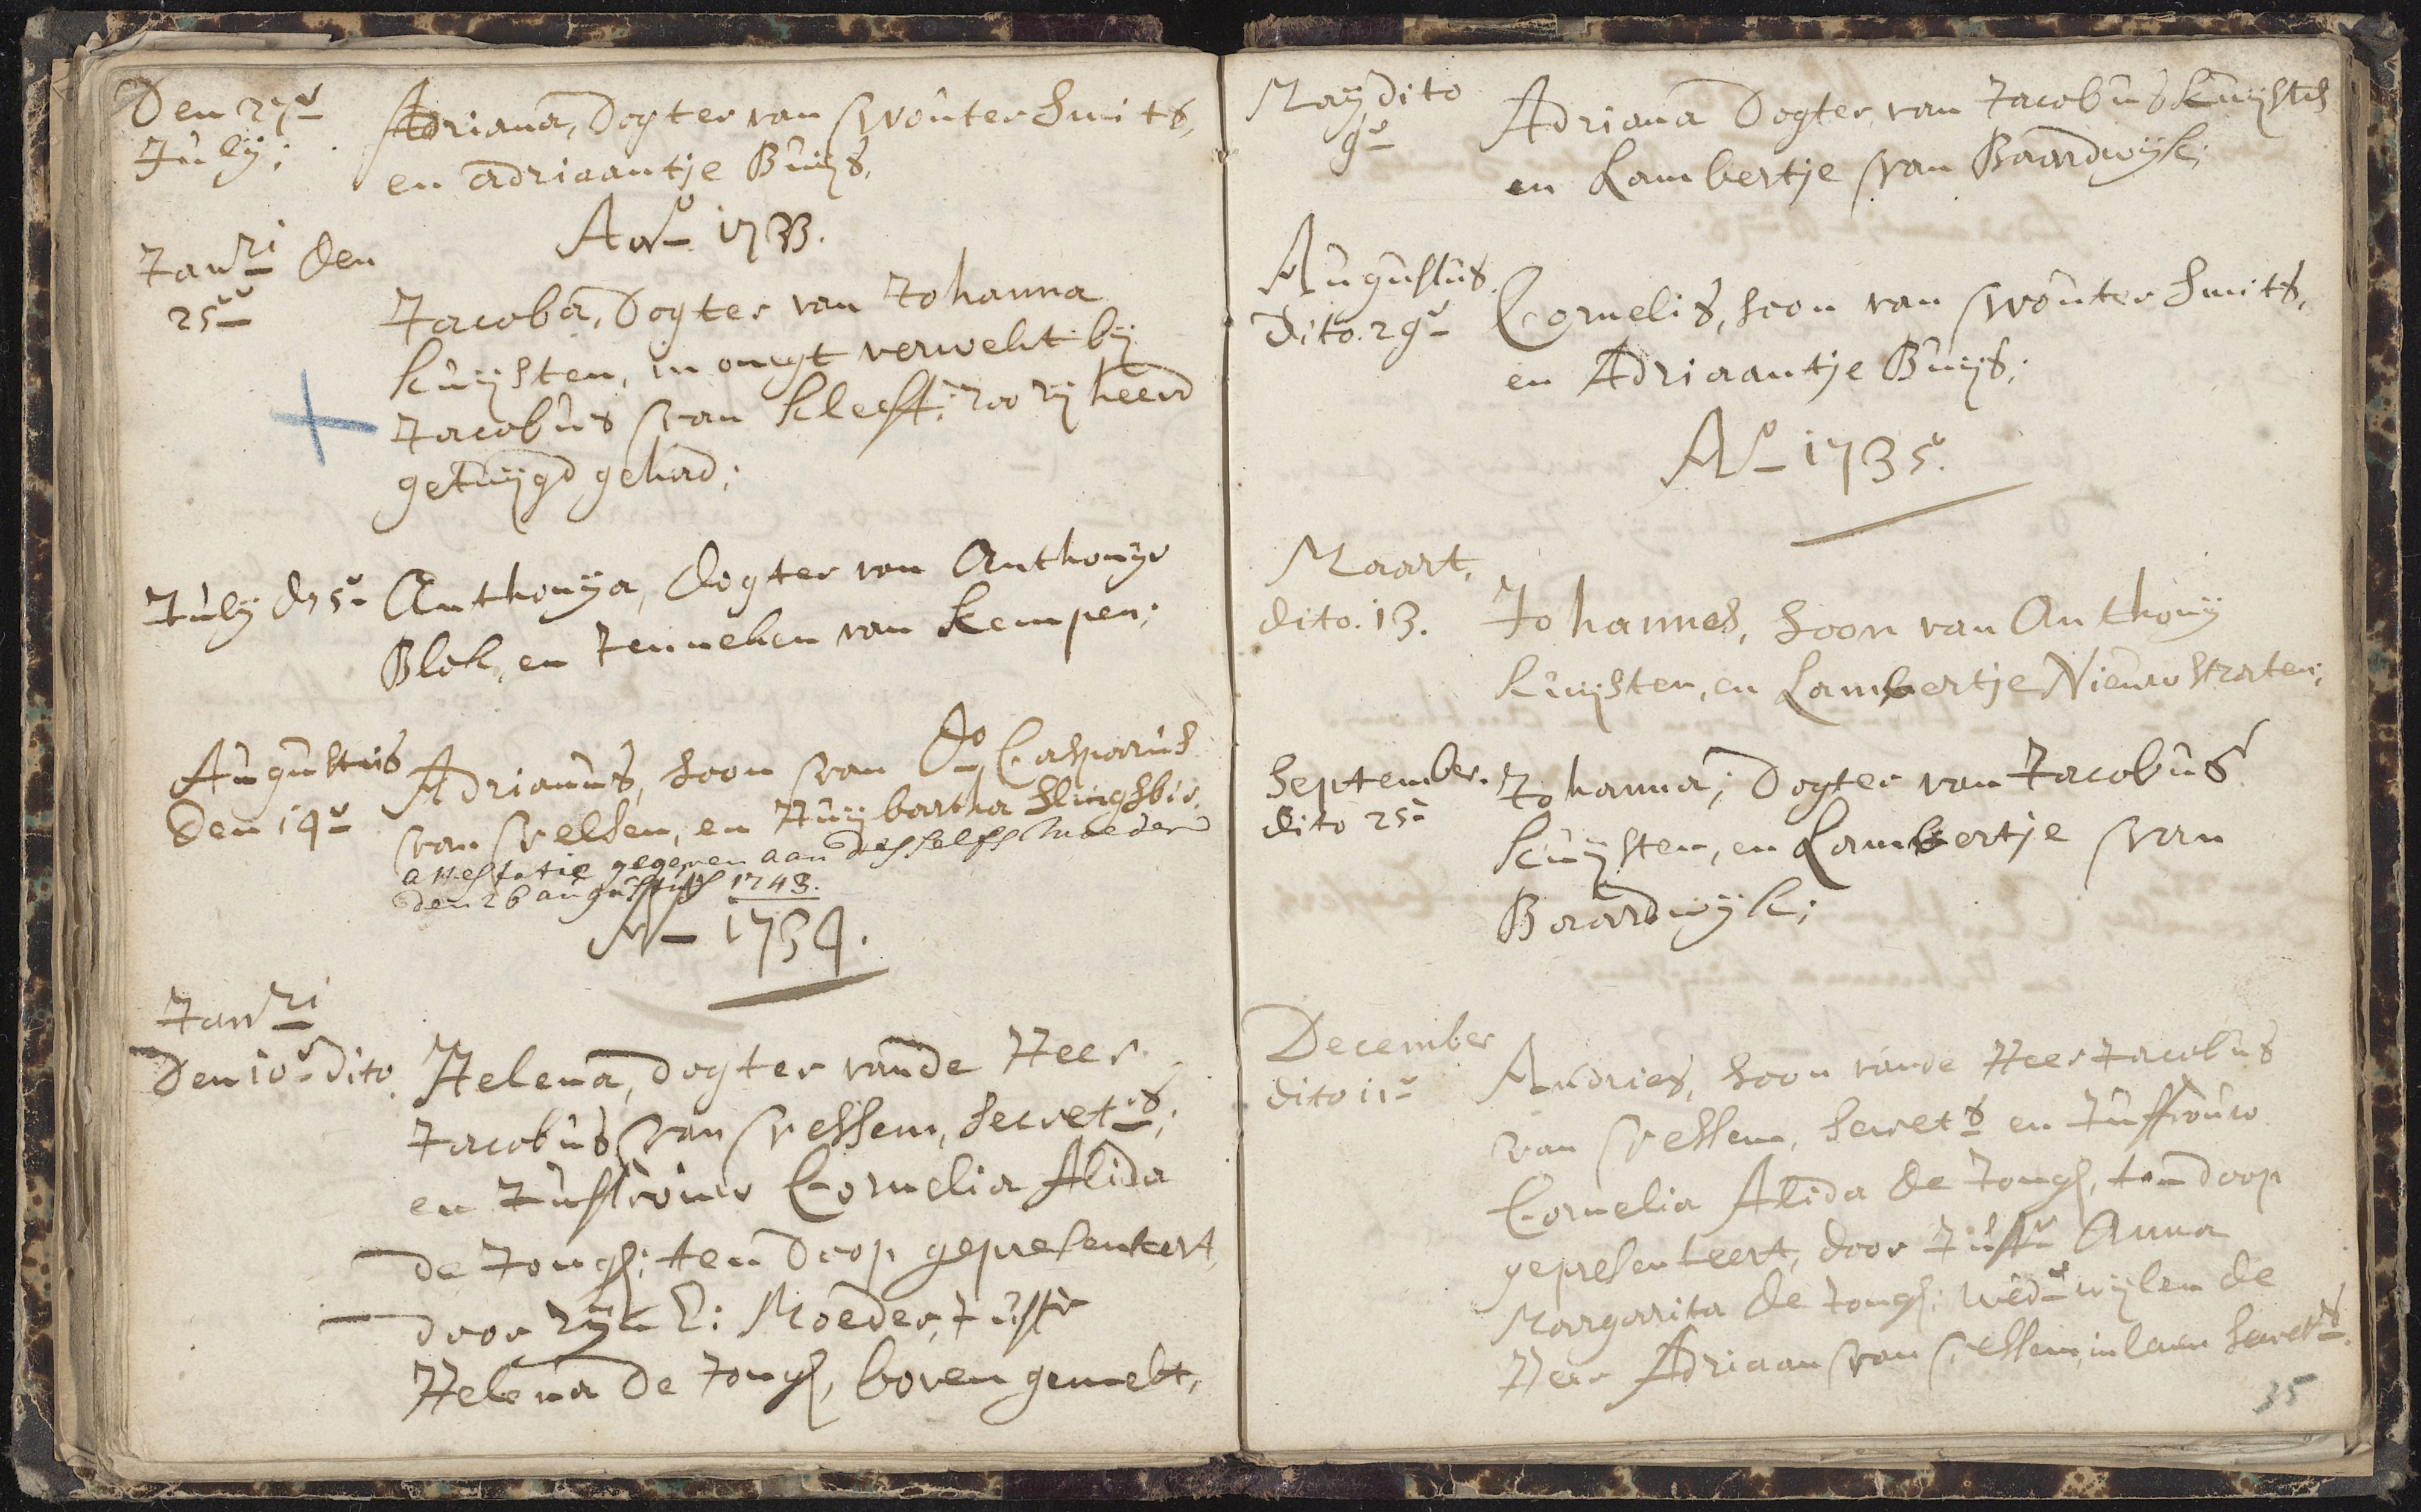 Den 27e
July;
Adriana, Dogter van Wouter Smits,
en Adriaantje Buijs,
Ao 1733.
Janri den
25e
Jacoba, Dogter van Johanna
Kuijsten, in onegt verwekt bij
Jacobus van Kleeff; zoo zij heeud
getuijgd gehad;
July d 5e
Anthonija, dogter van Anthonije
Blok, en Jenneken van Kempen;
Augustus
Den 14e
Adrianus, soon van Do Casparus
van Velsen, en Huijbartha Slingsbie.
attestatie gegeven aan desselfs Moeder
den 26 augustus 1743.
Ao 1734.
Janri
Den 10e dito.
Helena, dogter vande Heer
Jacobus van Vessem, Secrets,
en Juffrouw Cornelia Alida
de Jongh; ten Doop gepresenteert,
door zijn E: Moeder, Juffr
Helena de Jongh, boven gemelt,
Maij dito
9e
Adriana Dogter van Jacobus Kuijsten
en Lambertje van Baardwijk;
Augustus.
Dito. 29e
Cornelis, soon van Wouter Smits,
en Adriaantje Buijs;
Ao 1735.
Maart,
dito. 13.
Johannes, Soon van Anthonij
Kuijsten, en Lambertje Nieuwstraten;
September.
dito 25e
Johanna; Dogter van Jacobus
Kuijsten, en Lambertje van
Baardwijk;
December
dito 11e
Andries, soon vande Heer Jacobus
van Vessem, Secrets en Juffrouw
Cornelia Alida de Jongh, ten doop
gepresenteert, door Juffr Anna
Margarita de Jongh; wede wijlen de
Heer Adriaan van Vessem, in leven Secrets.
35